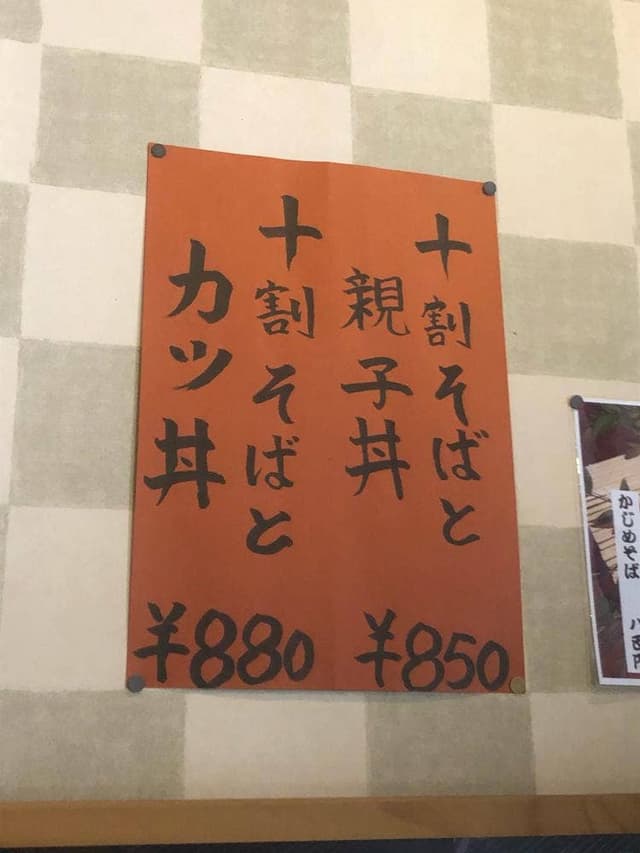 十割そばと
親子丼
¥850
十割そばと
カツ丼
¥880
かじめそば
八百円